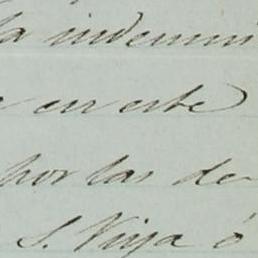 la indemni
en este
por las de
S. Vija ó